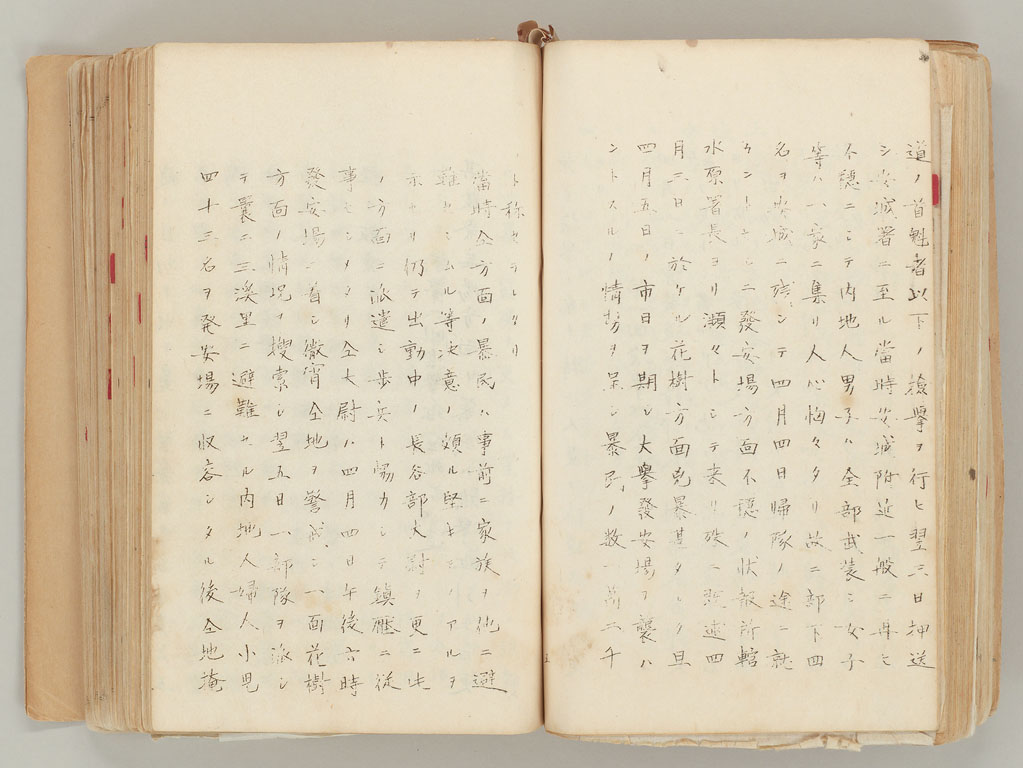 道ノ首魁者以下ノ檢擧ヲ行ヒ翌三日押送
シ安城署ニ至ル當時安城附近一般ニ
不穩ニシテ内地人男子ハ全部武装シ女子
等ハ一家ニ集リ人心恟々タリ故ニ部下四
名ヲ安城ニ残シテ四月四日帰隊ノ途ニ就
カントシニ發安場方面不穩ノ状報所轄
水原署長ヨリ瀕々トシテ来リ殊ニ四
月三日ニ於ケル花樹方面兇暴甚タシク且
四月五日ノ市日ヲ期シ大擧發安場ヲ襲ハ
ントスルノ情勢ヲ呈シ暴民ノ数一萬二千
ト称セラレタリ
當時仝方面ノ暴民ハ事前ニ家族ヲ他ニ避
難セシムル等決意ノ頗ル堅キモノアルヲ
示セリ仍テ出動中ノ長谷部大尉ヲ更ニ此
ノ方面ニ派遣シ歩兵ト協力シテ鎮壓ニ従
事セシメタリ仝大尉ハ四月四日午後六時
發安場ニ着シ徹宵仝地ヲ警戒シ一面花樹
方面ノ情況ヲ捜索シ翌五日一部隊ヲ派シ
テ曩ニ三溪里ニ避難セル内地人婦人小児
四十三名ヲ発安場ニ収容シタル後仝地掩